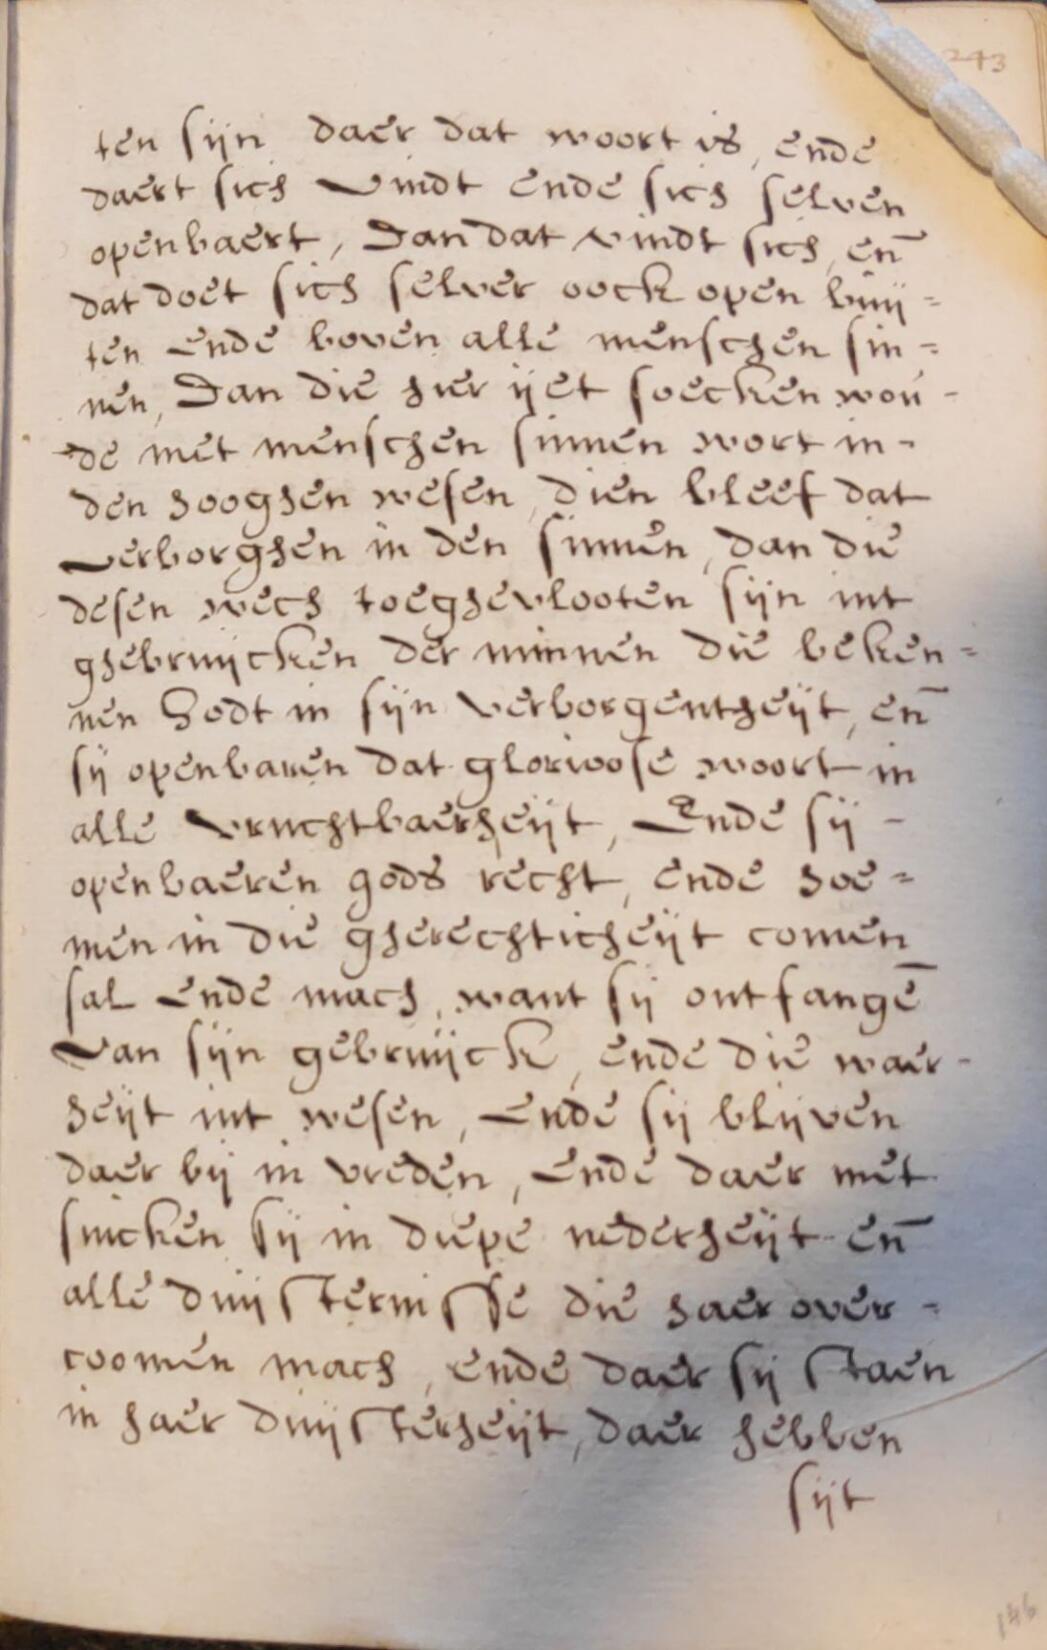 243
ten sijn daer dat woort is, ende
daert sich vindt ende sich selven
openbaert, Dan dat vindt sich, en̄
dat doet sich selver oock open buij=
ten ende boven alle menschen sin=
nen, Dan die hier ijet soecken wou-
de met menschen sinnen wort in-
den hooghen wesen, dien bleef dat
verborghen in den sinnen, dan die
desen wech toeghevlooten sijn int
ghebruijcken der minnen die beken=
nen Godt in sijn verborgentheijt, en̄
sij openbaren dat glorioose woort in
alle vruchtbaerheijt, Ende sij -
openbaeren gods recht, ende hoe=
men in die gherechticheijt comen
sal ende mach, want sij ontfangē
van sijn gebruijck, ende die waer-
heijt int wesen, Ende sij blijven
daer bij in vreden, Ende daer met
sincken sij in diepe nederheijt en̄
alle duijsternisse die haer over-
coomen mach, ende daer sij staen
in haer duijsterheijt, daer hebben
sijt
146